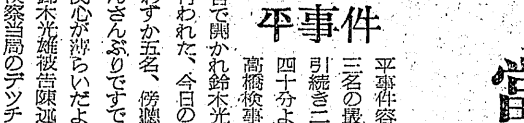 平事件
平事件容
三名の
引続き二
四十分よ
高橋検事
宮で開かれ鈴木光
行われた、今日の
わずか五名、傍聴
んさんぶりですで
関心が薄らいだよ
鈴木光雄被告陳述
検察当局のデッチ